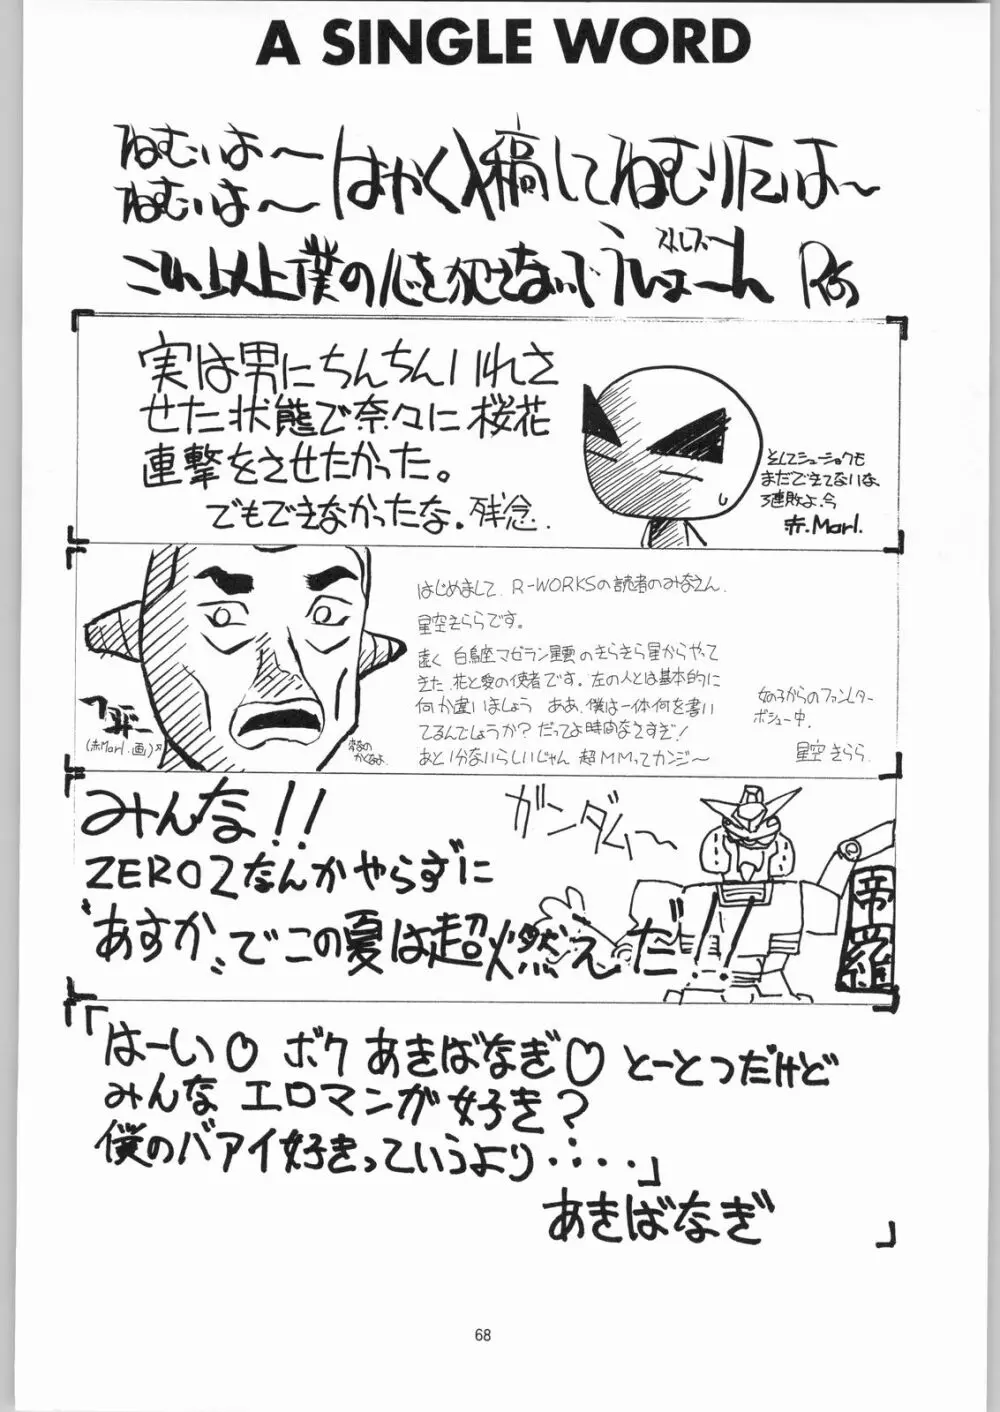 A SINGLE WORD
ねむいよ〜
ねむいよ〜
はやく入稿してねむりたいよ〜
ストレスで
これ以上僕の心を犯さないで
実は男にちんちんいれさ
せた状態で奈々に桜花
連撃をさせたかった。
でもできなかったな。残念.
そしてシューショクも
まだできてないな
3連敗よ、今
赤.Marl.
はじめまして. R-WORKSの読者のみなさん.
星空きららです。
遠く 白鳥座マゼラン星雲のきらきら星からやって
きた 花と愛の使者です。左の人とは基本的に
何か違いましょう ああ、僕は一体何を書い
てるんでしょうか? だってよ時間なさすぎ!
あと1分ないらしいじゃん 超MMってカンジ〜
女の子からのファンレター
ボシュー中.
星空きらら
(赤Marl.画)
みんな!!
ZERO2なんかやらずに
"あすか"でこの夏は超燃えだ!!
ガンダム〜
帝羅
「はーい♡ ボク あきばなぎ♡ とーとつだけど
みんな エロマンガ好き?
僕のバアイ好きっていうより・・・・」
あきばなぎ
68